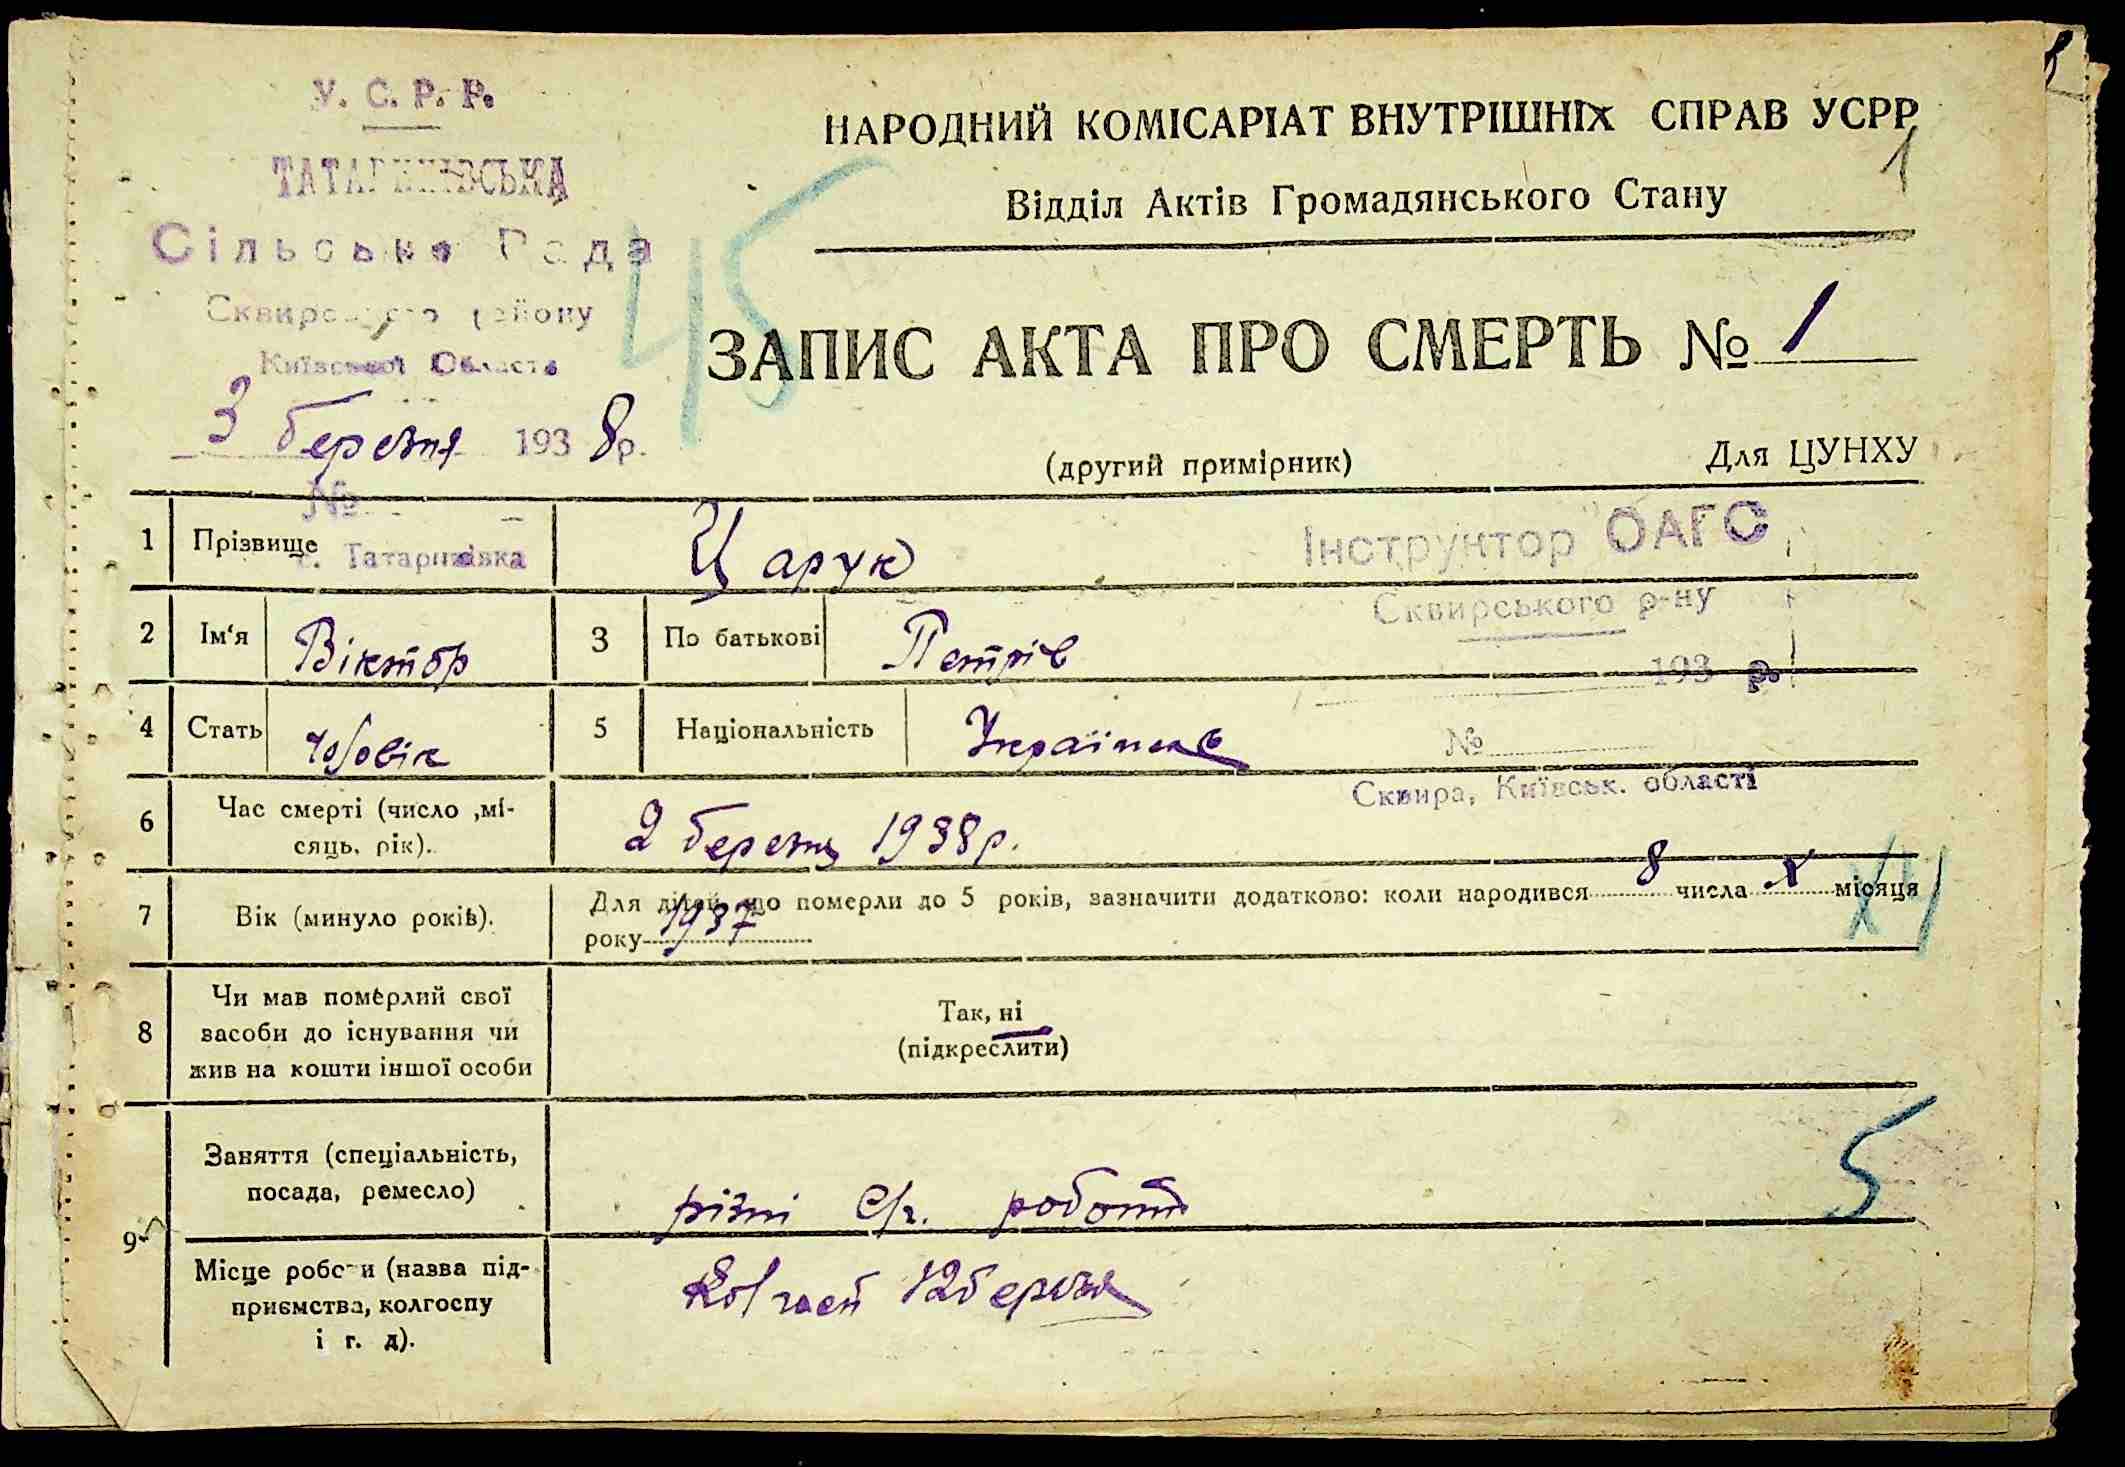 У. С. Р. Р.
ТАТАРИНІВСЬКА
Сільська Рада
Сквирського району
Київської Області
3 березня 1938р.
№
с. Татаринівка
НАРОДНИЙ КОМІСАРІАТ ВНУТРІШНІХ СПРАВ УСРР
1
Відділ Актів Громадянського Стану
45
ЗАПИС АКТА ПРО СМЕРТЬ № 1
(другий примірник)
Для ЦУНХУ
Інструктор ОАГС
Сквирського р-ну
193 р.
№
Сквира, Київськ. області
1 Прізвище Царук
2 Ім‘я Віктор 3 По батькові Петрів
4 Стать чоловік 5 Національність Українець
6 Час смерті (число ,мі-
сяць, рік). 2 березня 1938р.
7 Вік (минуло років). Для дітей, що померли до 5 років, зазначити додатково: коли народився 8 числа X місяця
року 1937
8 Чи мав померлий свої
засоби до існування чи
жив на кошти іншої особи
Так, ні
(підкреслити)
9 Заняття (спеціальність,
посада, ремесло) різні с/г. роботи
5
Місце роботи (назва під-
приємства, колгоспу
і т. д). 12 березня